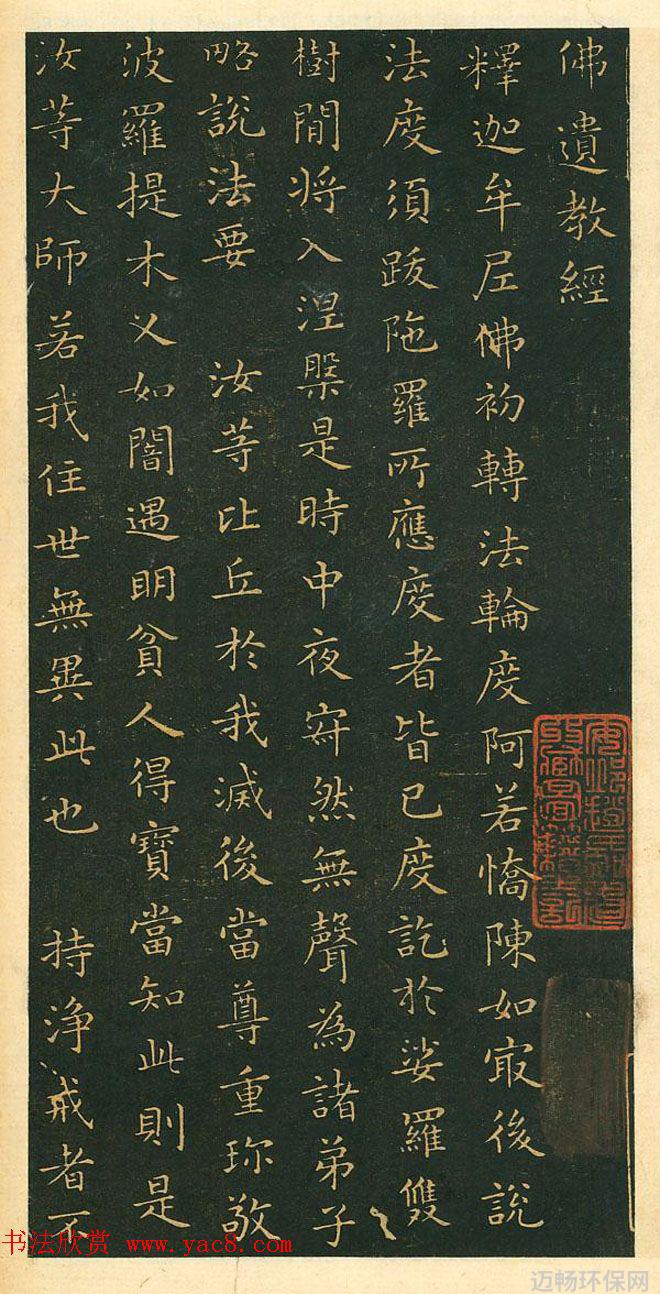 佛遺教經
釋迦牟尼佛初轉法輪度阿若憍陳如㝡後說
法度須跋陁羅所應度者皆已度訖於娑羅雙
樹間将入涅槃是時中夜寂然無聲為諸弟子
略說法要　汝等比丘於我滅後當尊重珎敬
波羅提木乂如闇遇明貧人得寶當知此則是
汝等大師若我住世無異此也　持淨戒者不
书法欣赏 www.yac8.com
迈畅环保网